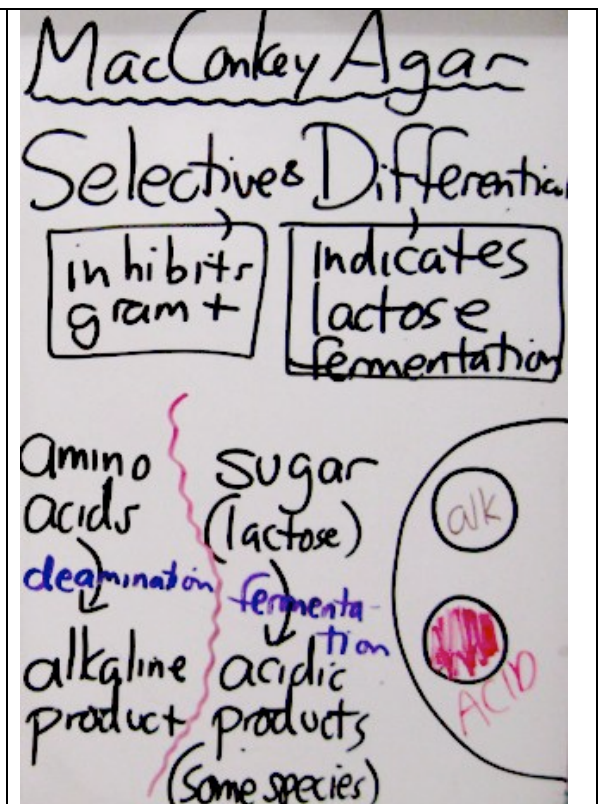 MacConkey Agar
Selective & Differential
inhibits
gram +
indicates
lactose
fermentation
amino
acids
deamination
alkaline
product
sugar
(lactose)
fermenta-
tion
acidic
products
(some species)
alk
ACID